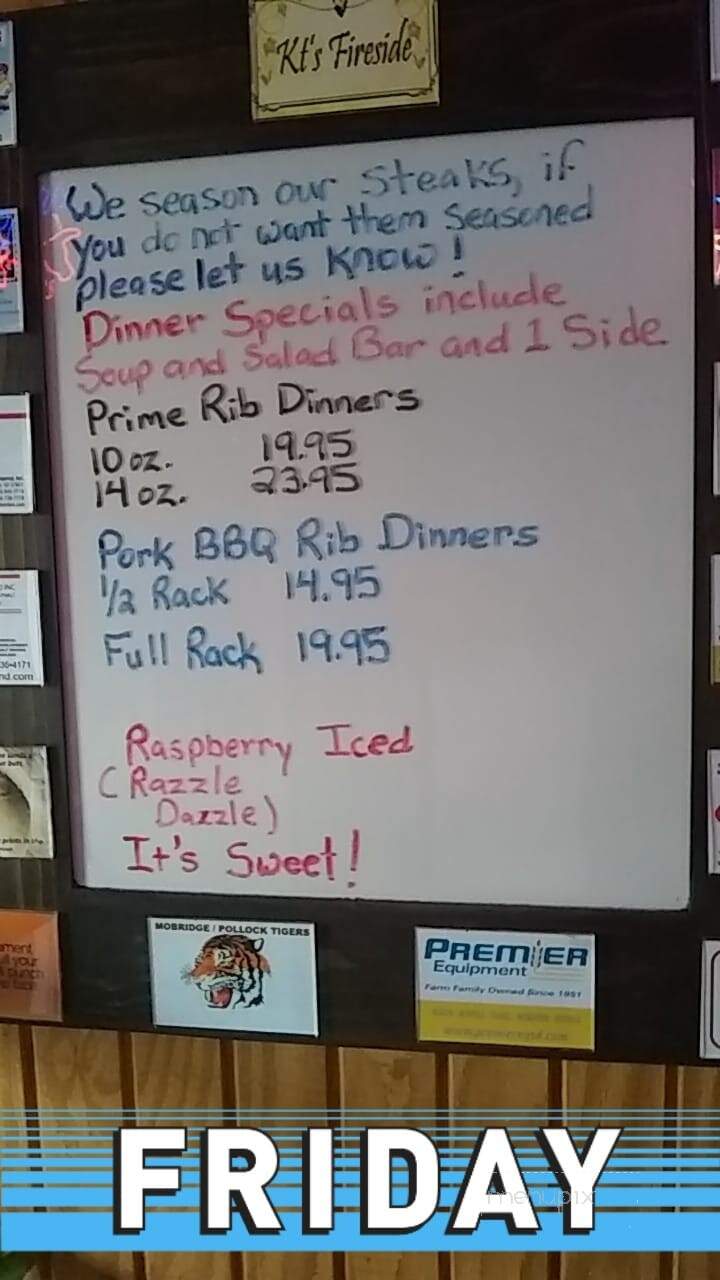 Kt's Fireside
We season our Steaks, if
you do not want them Seasoned
please let us know!
Dinner Specials include
Soup and Salad Bar and 1 Side
Prime Rib Dinners
10 oz. 19.95
14 oz. 23.95
Pork BBQ Rib Dinners
1/2 Rack 14.95
Full Rack 19.95
Raspberry Iced
(Razzle
Dazzle)
It's Sweet!
MOBRIDGE / POLLOCK TIGERS
PREMIER
Equipment
Farm Family Owned Since 1951
FRIDAY
menupix